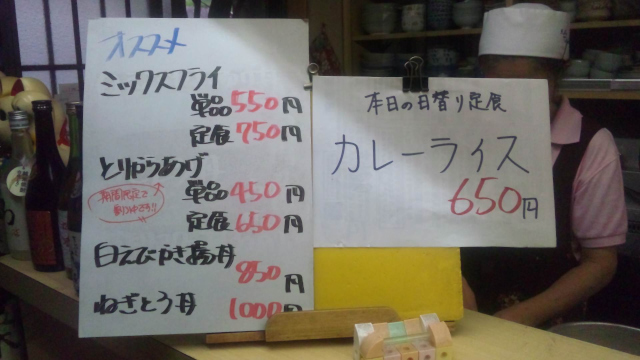 オススメ
ミックスフライ
単品550円
定食750円
とりからあげ
単品450円
定食650円
白えびかき揚丼
850円
ねぎとろ丼
1000円
本日の日替り定食
カレーライス
650円